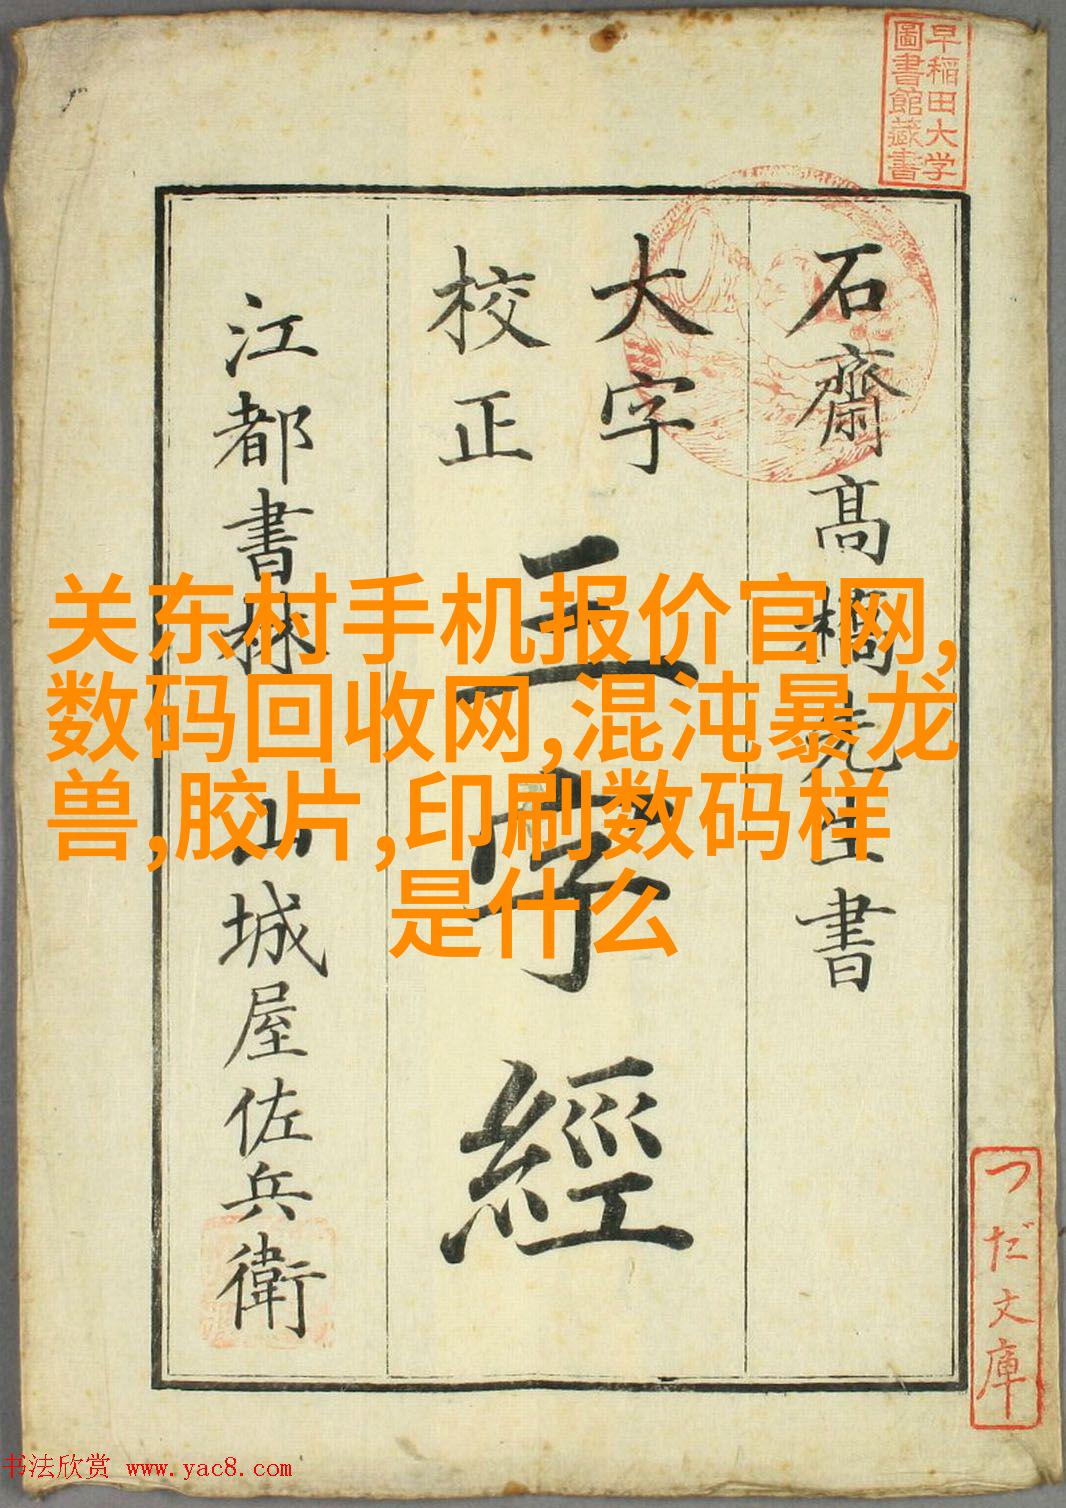 早稲田大学
圖書館蔵書
石齋髙橋先生書
大字
校正
三字經
江都書林 山城屋佐兵衛
关东村手机报价官网,
数码回收网,混沌暴龙
兽,胶片,印刷数码样
是什么
つだ文庫
书法欣赏 www.yac8.com